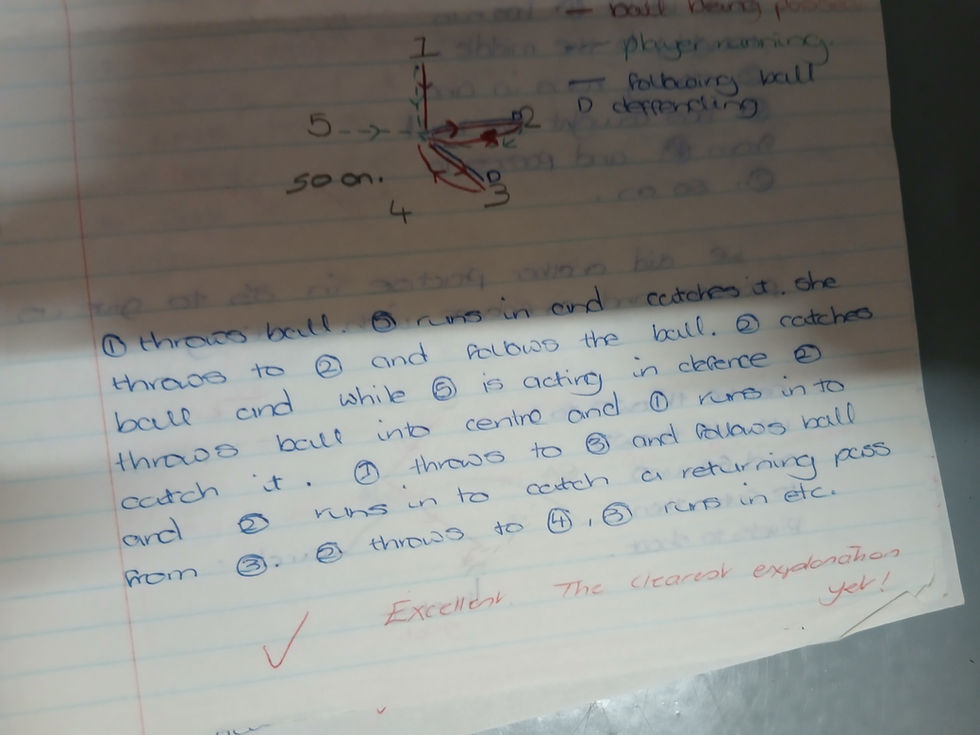 — ball being passed
1
--- player running.
— following ball
D deffending
5
2
D
so on.
3
4
① throws ball. ⑤ runs in and catches it. She
throws to ② and follows the ball. ② catches
ball and while ⑤ is acting in defence ②
throws ball into centre and ① runs in to
catch it. ① throws to ③ and follows ball
and ② runs in to catch a returning pass
from ③. ② throws to ④, ③ runs in etc.
Excellent. The clearest explanation
yet!